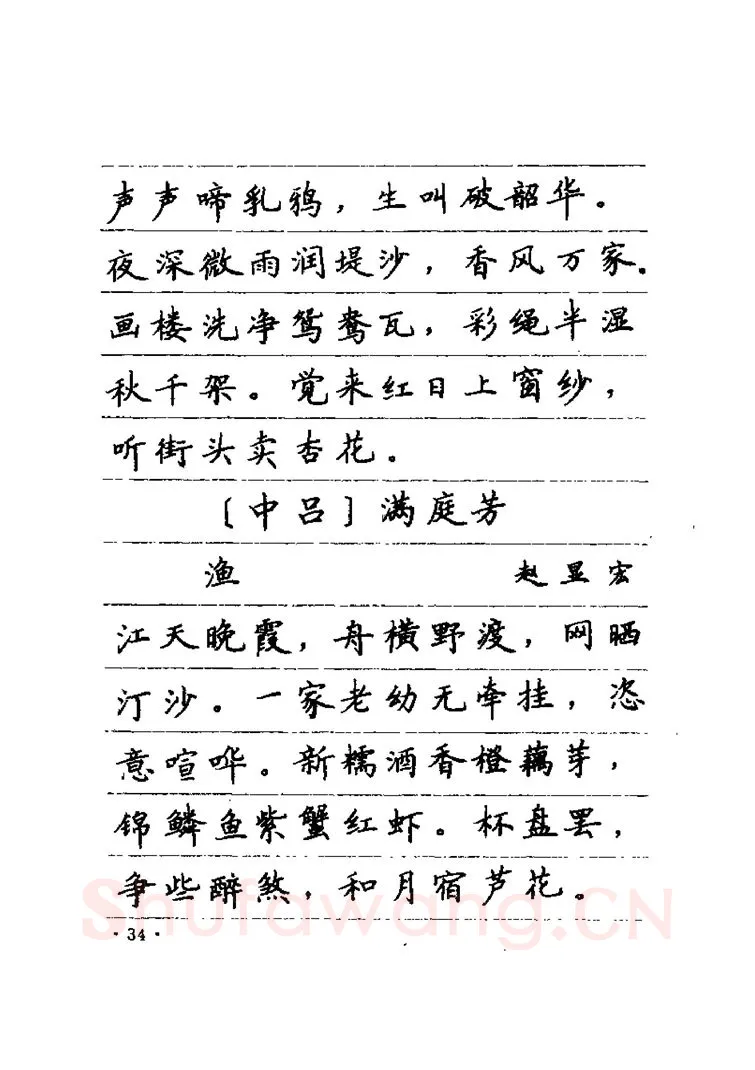 声声啼乳鸦，生叫破韶华。
夜深微雨润堤沙，香风万家。
画楼洗净鸳鸯瓦，彩绳半湿
秋千架。觉来红日上窗纱，
听街头卖杏花。
〔中吕〕满庭芳
渔 赵显宏
江天晚霞，舟横野渡，网晒
汀沙。一家老幼无牵挂，恣
意喧哗。新糯酒香橙藕芽，
锦鳞鱼紫蟹红虾。杯盘罢，
争些醉煞，和月宿芦花。
Shufawang.CN
· 34 ·